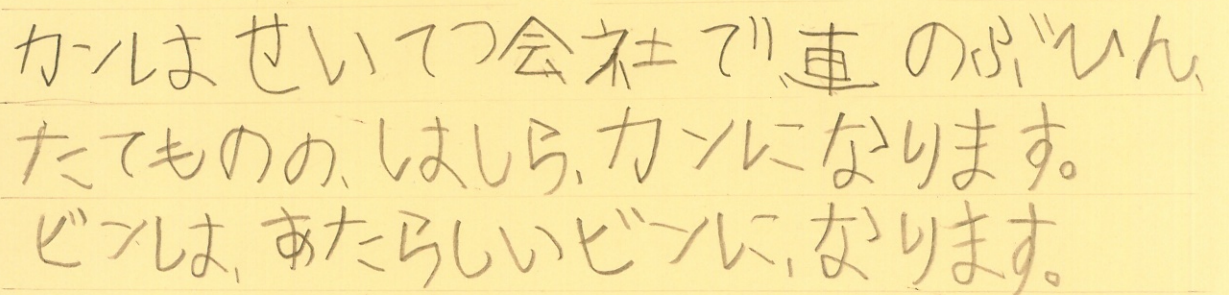 カンは せいてつ会社で、車のぶひん、
たてものの、はしら、カンになります。
ビンは、あたらしいビンに、なります。